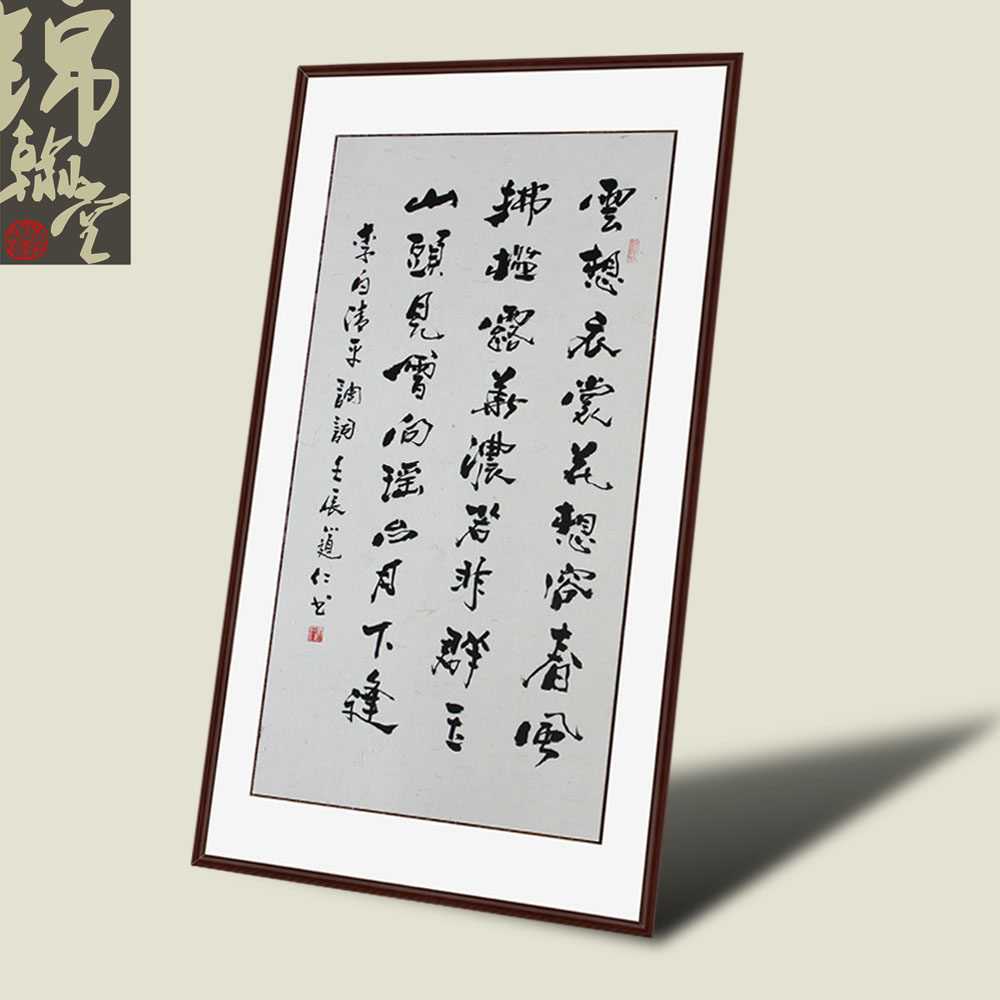 錦翰堂
雲想衣裳花想容春風
拂檻露華濃若非群玉
山頭見雪向瑶台月下逢
李白清平調詞壬辰 仁书